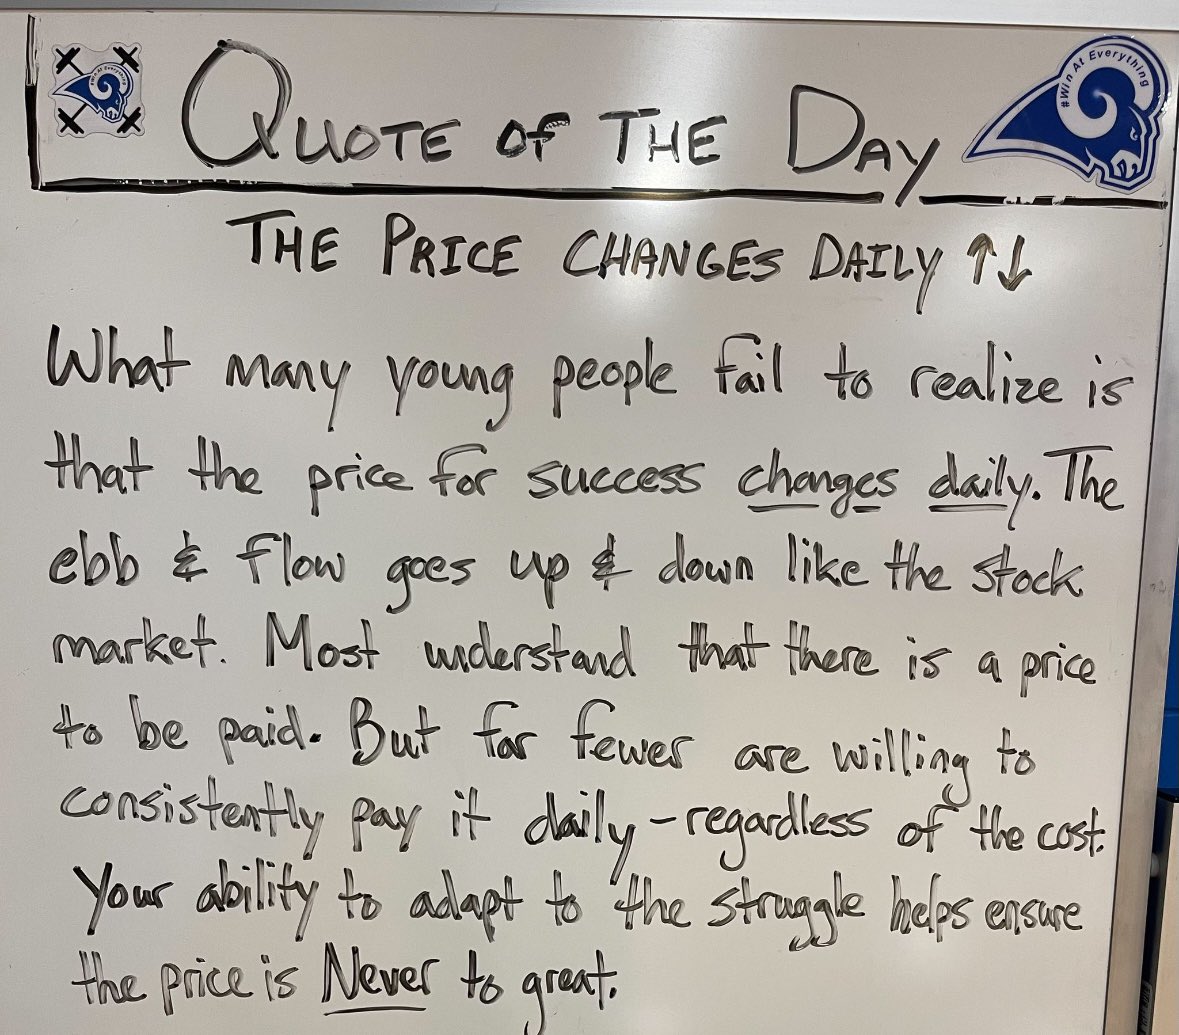 QUOTE of THE DAY
#Win At Everything
THE PRICE CHANGES DAILY ↑↓
What many young people fail to realize is
that the price for success changes daily. The
ebb & flow goes up & down like the stock
market. Most understand that there is a price
to be paid. But far fewer are willing to
consistently pay it daily - regardless of the cost.
Your ability to adapt to the struggle helps ensure
the price is Never to great.